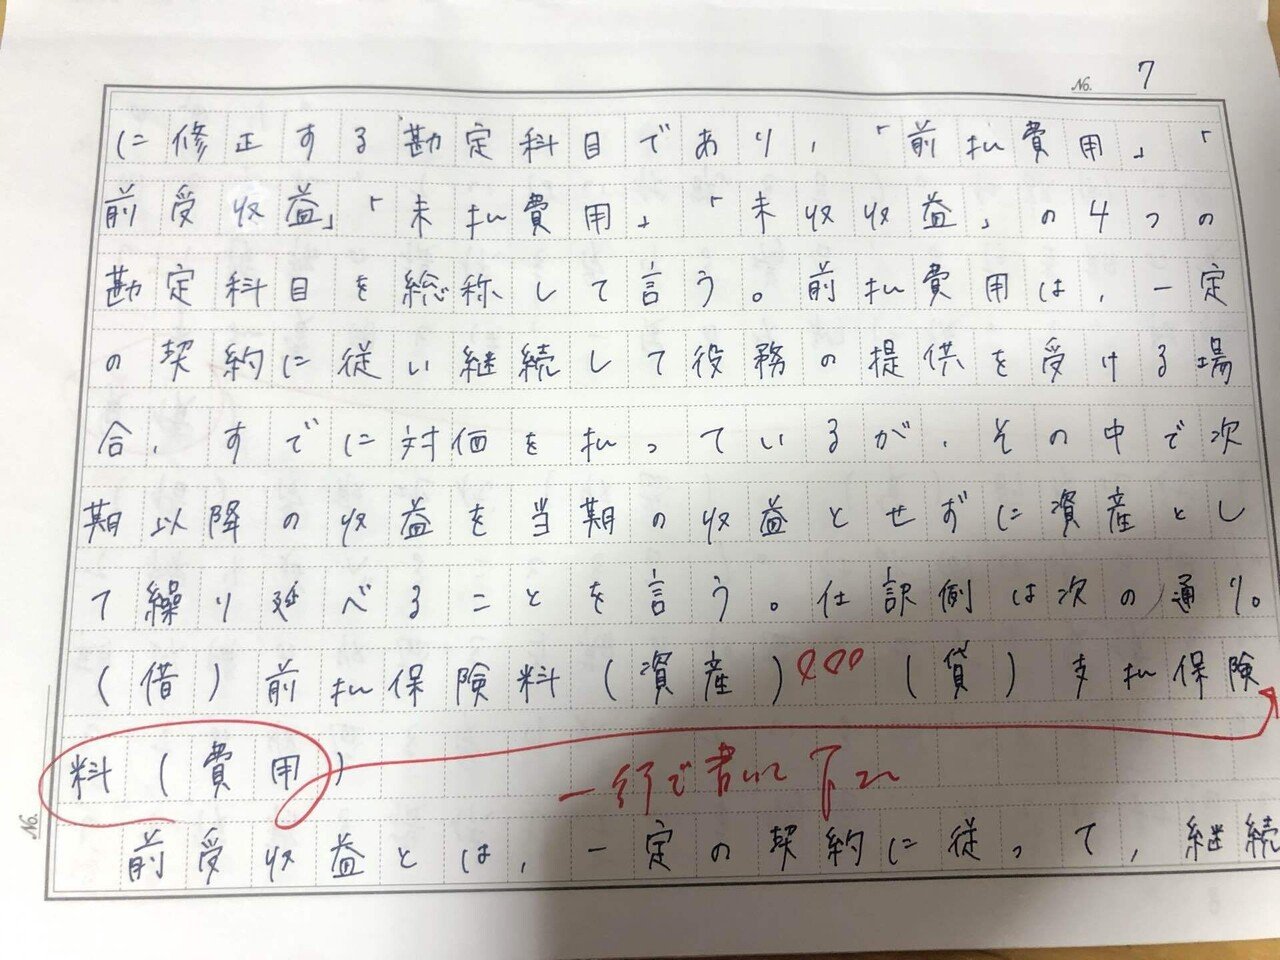 No. 7
に修正する勘定科目であり,「前払費用」「
前受収益」「未払費用」「未収収益」の4つの
勘定科目を総称して言う。前払費用は、一定
の契約に従い継続して役務の提供を受ける場
合、すでに対価を払っているが、その中で次
期以降の収益を当期の収益とせずに資産とし
て繰り延べることを言う。仕訳例は次の通り。
(借)前払保険料(資産)(貸)支払保険
料(費用)
一行で書いて下さい
前受収益とは,一定の契約に従って,継続
No.